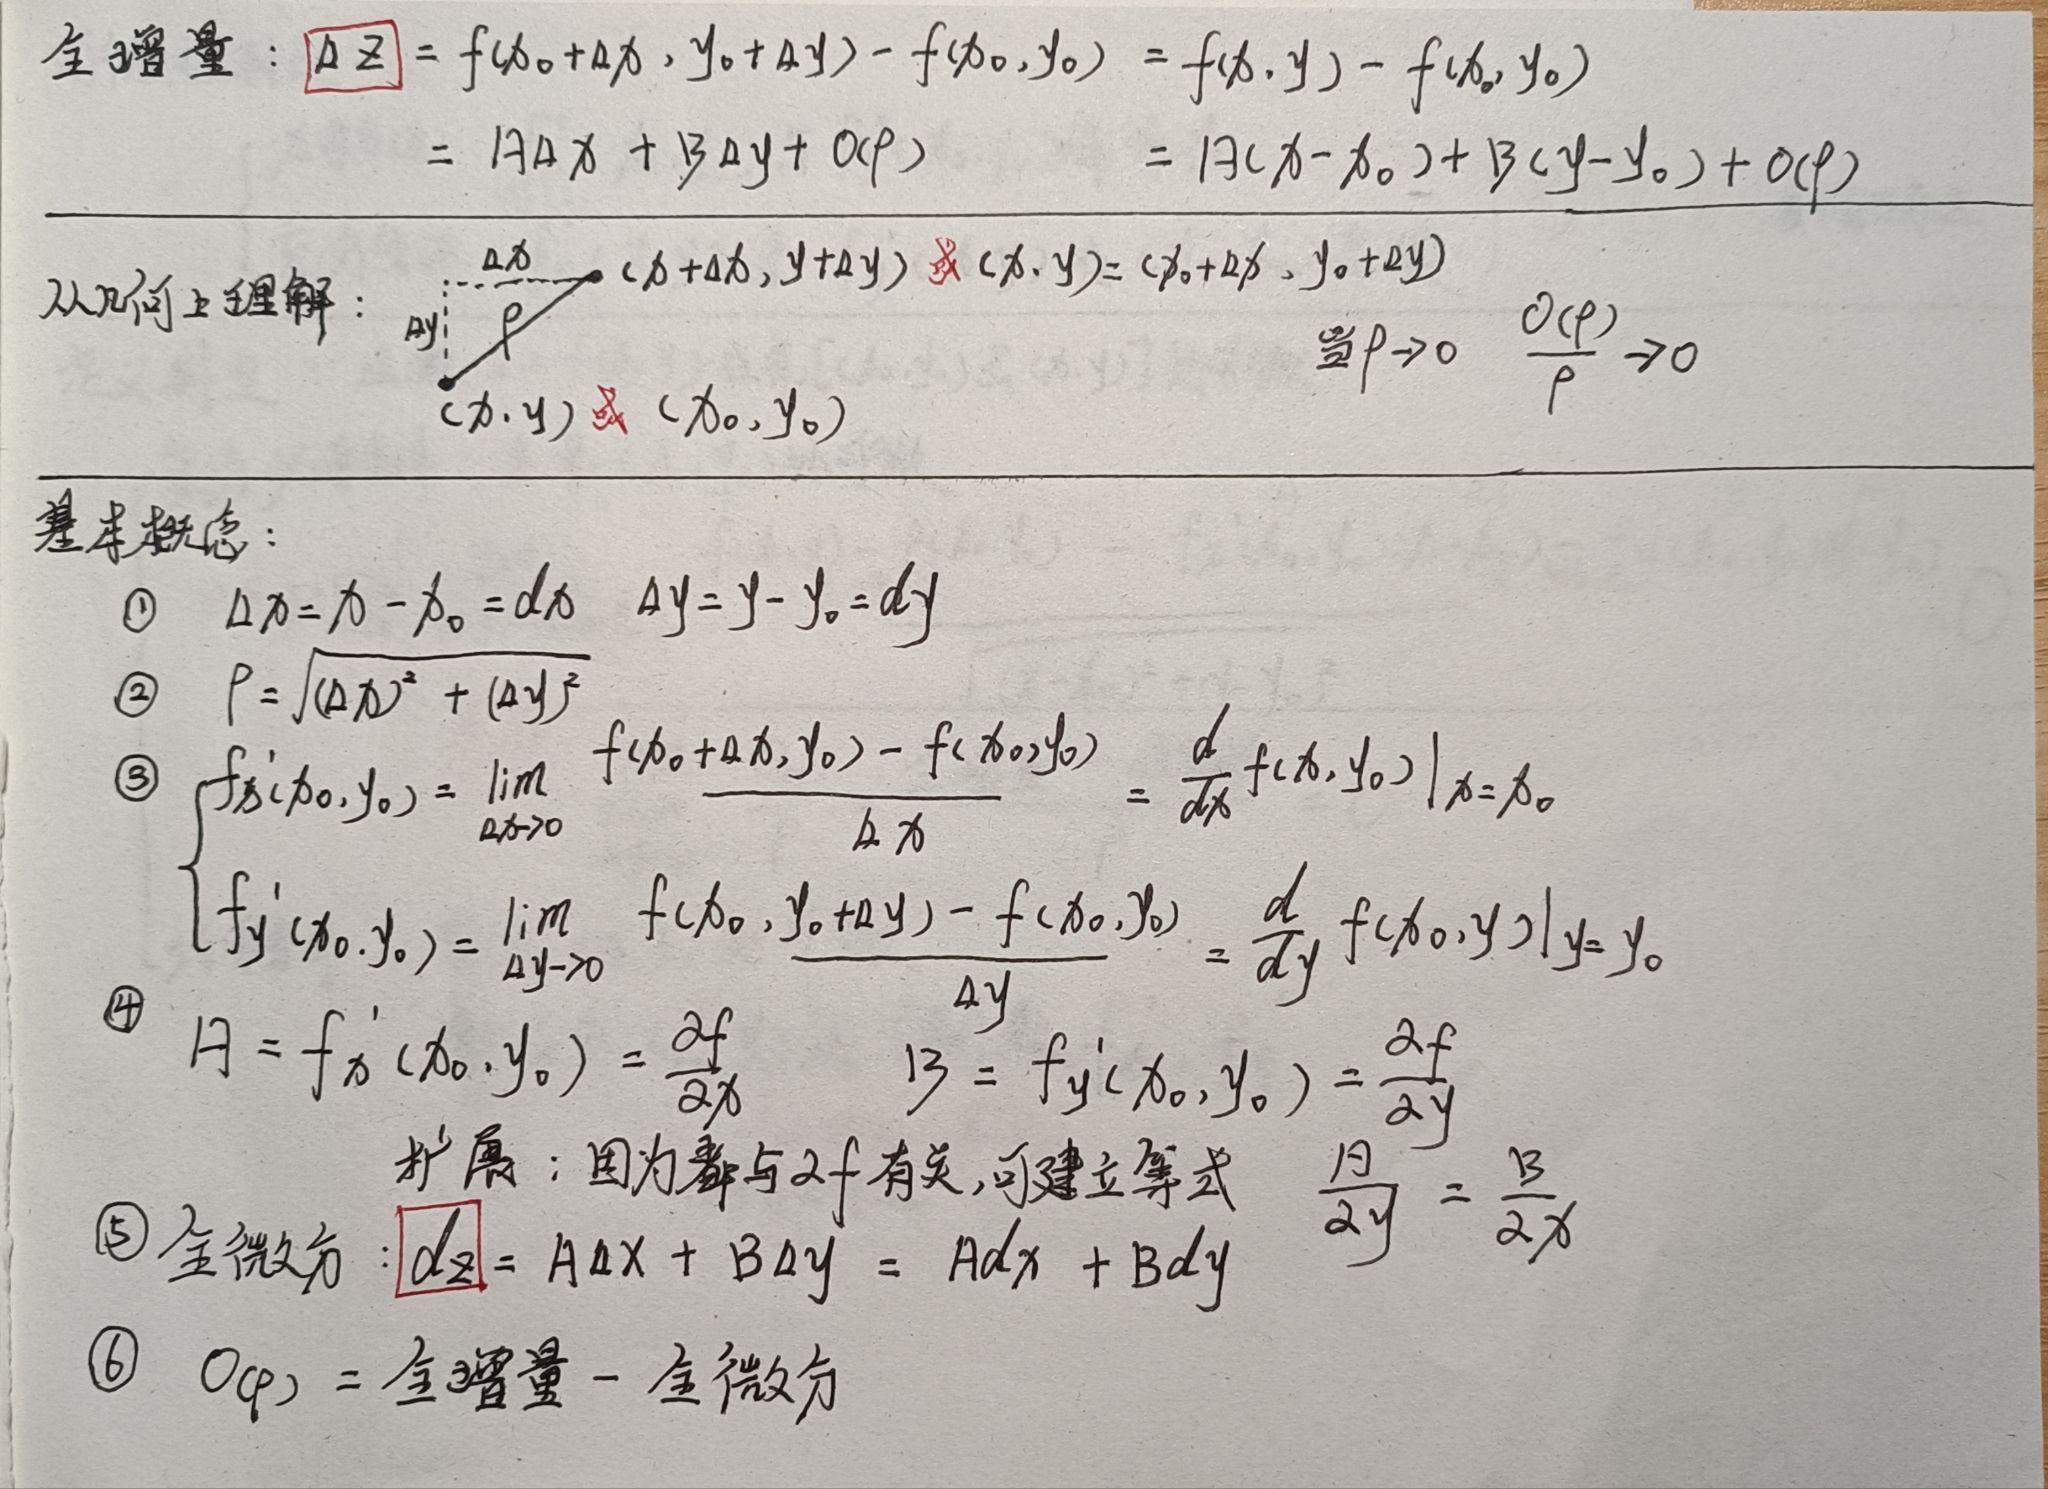 全增量：Δz = f(x₀+Δx, y₀+Δy) - f(x₀, y₀) = f(x, y) - f(x₀, y₀)
= AΔx + BΔy + o(ρ) = A(x-x₀) + B(y-y₀) + o(ρ)
从几何上理解：
Δx
(x+Δx, y+Δy) 或 (x, y) = (x₀+Δx, y₀+Δy)
Δy
ρ
(x, y) 或 (x₀, y₀)
当ρ→0 o(ρ)/ρ →0
基本概念：
① Δx = x - x₀ = dx Δy = y - y₀ = dy
② ρ = √((Δx)² + (Δy)²)
③ fx'(x₀, y₀) = lim Δx→0 (f(x₀+Δx, y₀) - f(x₀, y₀))/Δx = d/dx f(x, y₀)|x=x₀
fy'(x₀, y₀) = lim Δy→0 (f(x₀, y₀+Δy) - f(x₀, y₀))/Δy = d/dy f(x₀, y)|y=y₀
④ A = fx'(x₀, y₀) = ∂f/∂x B = fy'(x₀, y₀) = ∂f/∂y
扩展：因为都与∂f有关，可建立等式 A/∂y = B/∂x
⑤ 全微分：dz = AΔx + BΔy = Adx + Bdy
⑥ o(ρ) = 全增量 - 全微分